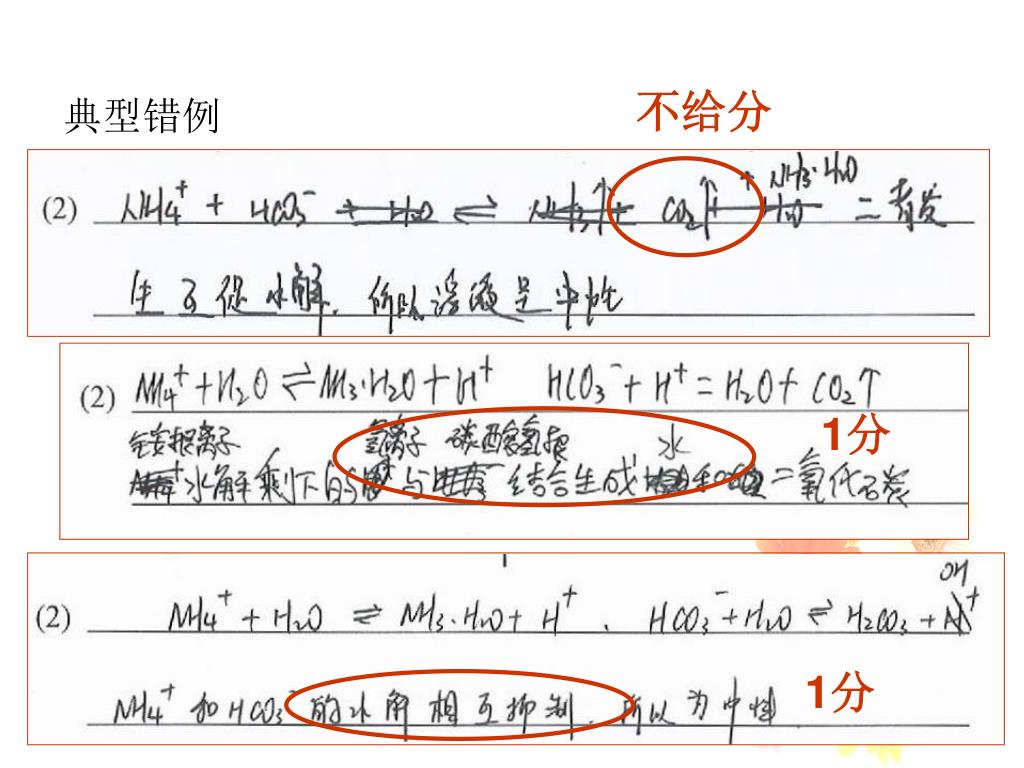 典型错例
不给分
+ NH3·H2O
(2) NH4⁺ + HCO3⁻ + H2O ⇌ NH3↑ + CO2↑ + H2O 二者发
生互促水解.所以溶液呈中性
(2) NH4⁺+H2O⇌NH3·H2O+H⁺ HCO3⁻+H⁺=H2O+CO2↑
1分
铵根离子 氢离子 碳酸氢根 水
水解剩下的 与 结合生成 和 二氧化碳
OH
(2) NH4⁺+H2O ⇌ NH3·H2O+H⁺. HCO3⁻+H2O ⇌ H2CO3+
NH4⁺和HCO3⁻的水解相互抑制.所以为中性
1分